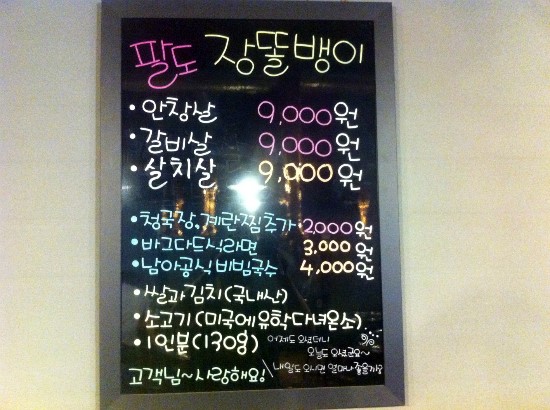 팔도 장똘뱅이
• 안창살 9,000원
• 갈비살 9,000원
• 살치살 9,000원
• 청국장, 계란찜추가 • 2,000원
• 바그다드식라면 3,000원
• 남아공식 비빔국수 4,000원
• 쌀과김치(국내산)
• 소고기(미국에유학다녀온소)
• 1인분(130g)
어제도 오셨더니
오늘도 오셨군요~
내일도 오시면 얼마나 좋을까요
고객님~사랑해요!